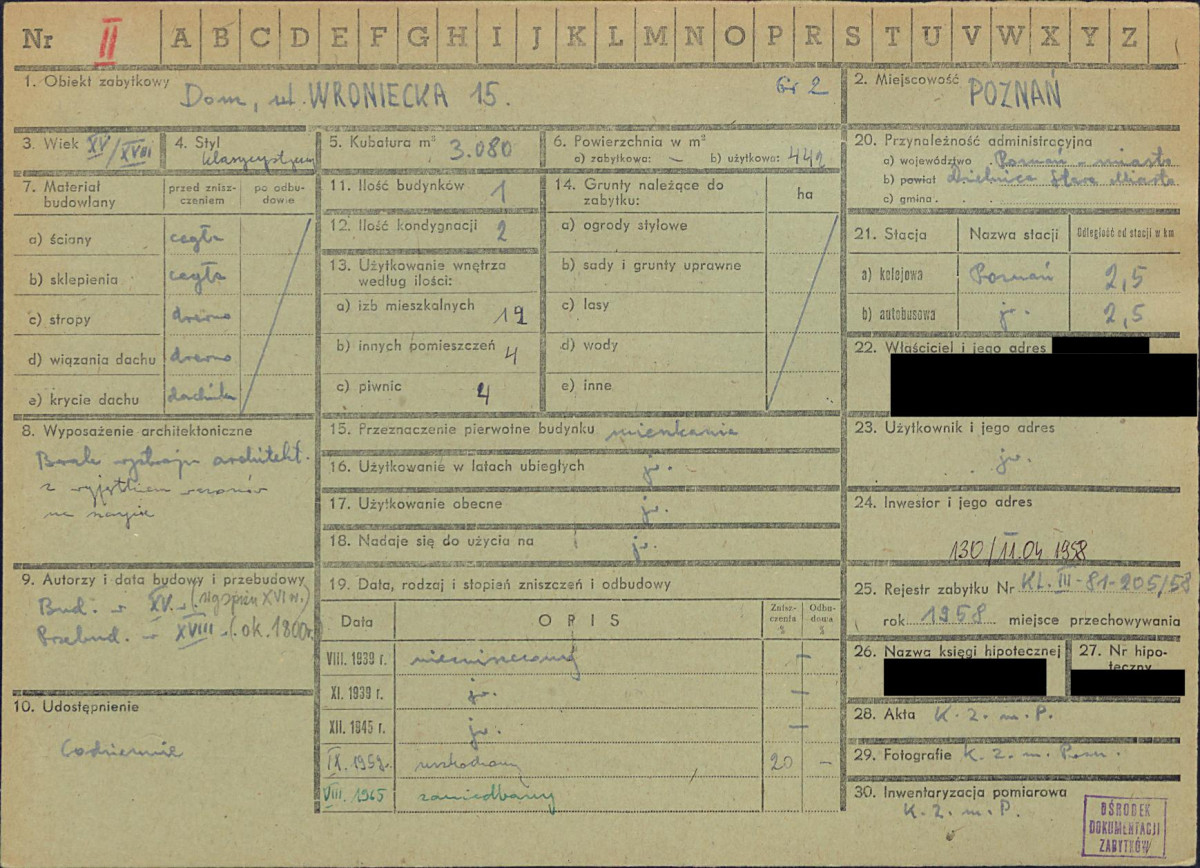 Nr II A B C D E F G H I J K L M N O P R S T U V W X Y Z
1. Obiekt zabytkowy Dom, ul. WRONIECKA 15. Gr 2
2. Miejscowość POZNAŃ
3. Wiek XV/XVIII
4. Styl klasycystyczny
5. Kubatura m³ 3.080
6. Powierzchnia w m²
a) zabytkowa: – b) użytkowa: 442
7. Materiał budowlany
przed znisz-
czeniem
po odbu-
dowie
a) ściany cegła
b) sklepienia cegła
c) stropy drewno
d) wiązania dachu drewno
e) krycie dachu dachówka
8. Wyposażenie architektoniczne
Brak wystroju architekt.
z wyjątkiem wazonów
na
9. Autorzy i data budowy i przebudowy
Bud. w XV w. XVI w.)
Przebud. w XVIII w. (ok. 1800r.
10. Udostępnienie
Codziennie
11. Ilość budynków 1
12. Ilość kondygnacji 2
13. Użytkowanie wnętrza
według ilości:
a) izb mieszkalnych 19
b) innych pomieszczeń 4
c) piwnic 4
14. Grunty należące do
zabytku:
ha
a) ogrody stylowe
b) sady i grunty uprawne
c) lasy
d) wody
e) inne
15. Przeznaczenie pierwotne budynku mieszkania
16. Użytkowanie w latach ubiegłych jw.
17. Użytkowanie obecne jw.
18. Nadaje się do użycia na jw.
19. Data, rodzaj i stopień zniszczeń i odbudowy
Data OPIS Znisz-
czenia
%
Odbu-
dowa
%
VIII. 1939 r. niezniszczony –
XI. 1939 r. jw. –
XII. 1945 r. jw. –
IX. 1959r. uszkodzony 20 –
VIII. 1965 zaniedbany
20. Przynależność administracyjna
a) województwo Poznań - miasto
b) powiat Dzielnica Stare Miasto
c) gmina
21. Stacja Nazwa stacji Odległość od stacji w km
a) kolejowa Poznań 2,5
b) autobusowa jw. 2,5
22. Właściciel i jego adres
23. Użytkownik i jego adres
jw.
24. Inwestor i jego adres
130/11.04 1958
25. Rejestr zabytku Nr KL. III-81-205/58
rok 1958 miejsce przechowywania
26. Nazwa księgi hipotecznej
27. Nr hipo-
teczny
28. Akta K. Z. m. P.
29. Fotografie K. Z. m. Pozn.
30. Inwentaryzacja pomiarowa
K. Z. m. P.
OŚRODEK
DOKUMENTACJI
ZABYTKÓW